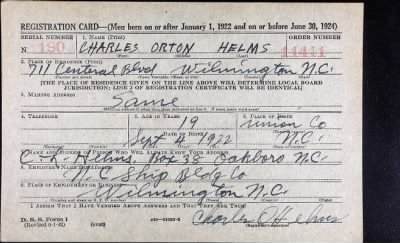 REGISTRATION CARD—(Men born on or after January 1, 1922 and on or before June 30, 1924)
SERIAL NUMBER 1. NAME (Print) ORDER NUMBER
N 190 CHARLES ORTON HELMS 14441
2. PLACE OF RESIDENCE (Print)
711 Central Blvd Wilmington N.C.
[THE PLACE OF RESIDENCE GIVEN ON THE LINE ABOVE WILL DETERMINE LOCAL BOARD
JURISDICTION; LINE 2 OF REGISTRATION CERTIFICATE WILL BE IDENTICAL]
3. MAILING ADDRESS
Same
4. TELEPHONE 5. AGE IN YEARS 6. PLACE OF BIRTH
19 Union Co
DATE OF BIRTH
Sept 1922 N.C.
7. NAME AND ADDRESS OF PERSON WHO WILL ALWAYS KNOW YOUR ADDRESS
C. L. Helms, Box 38 Oakboro N.C.
8. EMPLOYER'S NAME AND ADDRESS
N.C. Ship Bldg Co
9. PLACE OF EMPLOYMENT OR BUSINESS
Wilmington N.C.
I AFFIRM THAT I HAVE VERIFIED ABOVE ANSWERS AND THAT THEY ARE TRUE.
D. S. S. Form 1 Charles O Helms